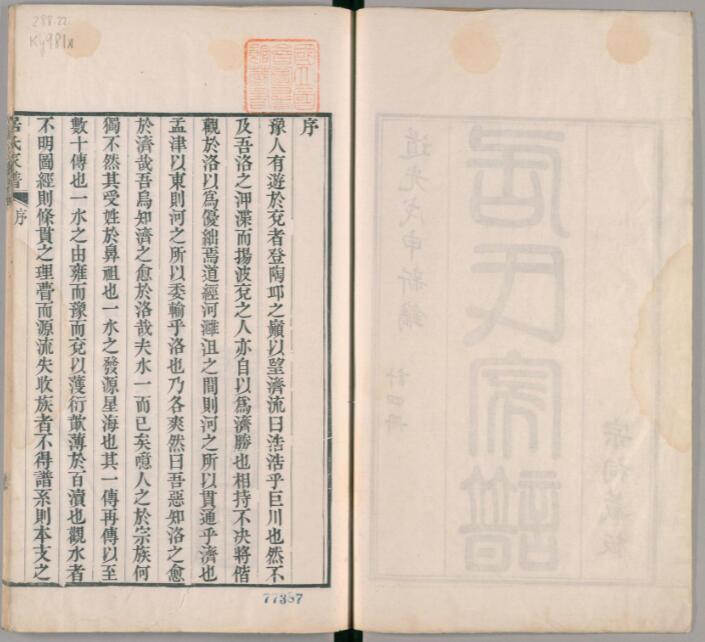 288.22
Ky981k
國立國
會圖書
館藏書
序
豫人有遊於兗者登陶邱之巔以望濟流曰浩浩乎巨川也然不
及吾洛之渫而揚波兗之人亦自以爲濟勝也相持不決將偕
觀於洛以爲優絀焉道經河灉沮之間則河之所以貫通乎濟也
孟津以東則河之所以委輸乎洛也乃各爽然曰吾惡知洛之愈
於濟哉吾烏知濟之愈於洛哉夫水一而已矣噫人之於宗族何
獨不然其受姓於鼻祖也一水之發源星海也其一傳再傳以至
數十傳也一水之由雍而豫而兗以濩衍歕薄於百瀆也觀水者
不明圖經則條貫之理瞢而源流失收族者不得譜系則本支之
居氏家譜
序
77357
道光戊申新鐫
計四冊
居氏家譜
宗祠藏板